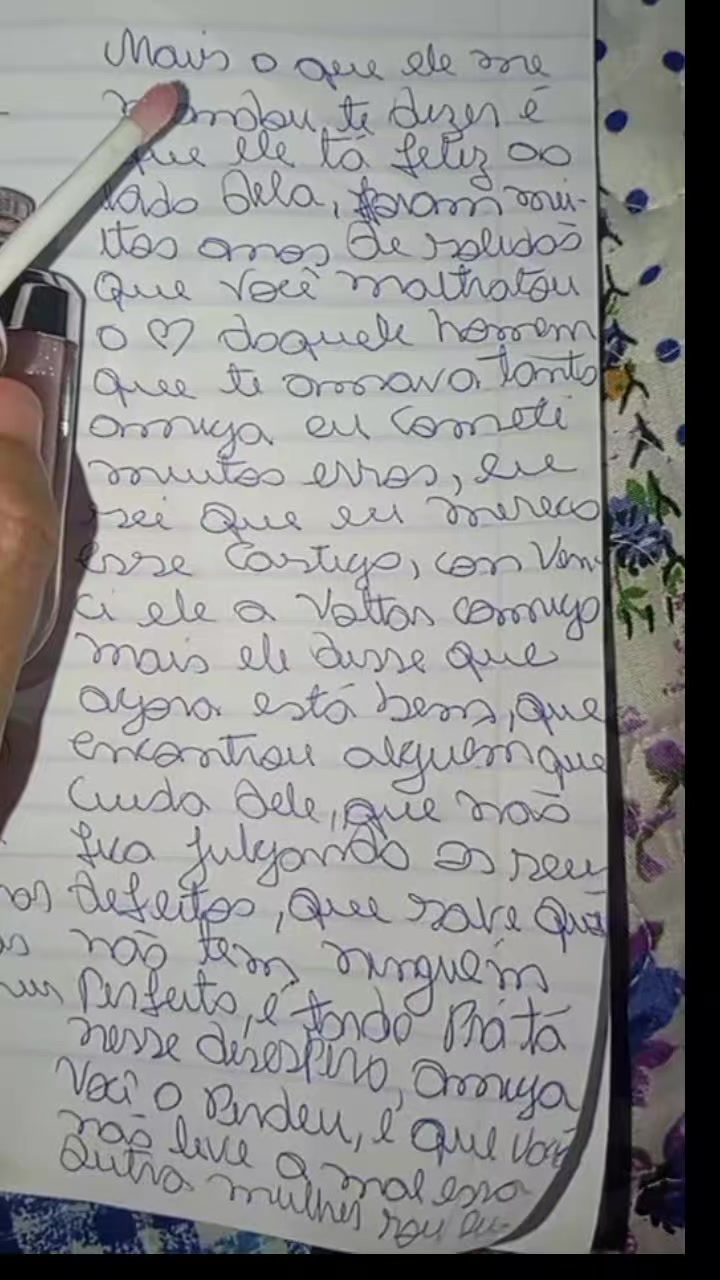 Mais o que ele me
mandou te dizer é
que ele tá feliz ao
lado dela, foram mui-
itos anos de solidão
que você maltratou
o ♡ daquele homem
que te amava tanto
amiga eu cometi
muitos erros, eu
sei que eu mereco
esse castigo, conven
ci ele a voltar comigo
mais ele disse que
agora está bem, que
encontrou alguém que
cuida dele, que não
fica julgando os seus
defeitos, que sabe que
não tem ninguém
perfeito, é
nesse desespero, amiga
você o perdeu, é que você
não leve a mal essa
outra mulher sou eu